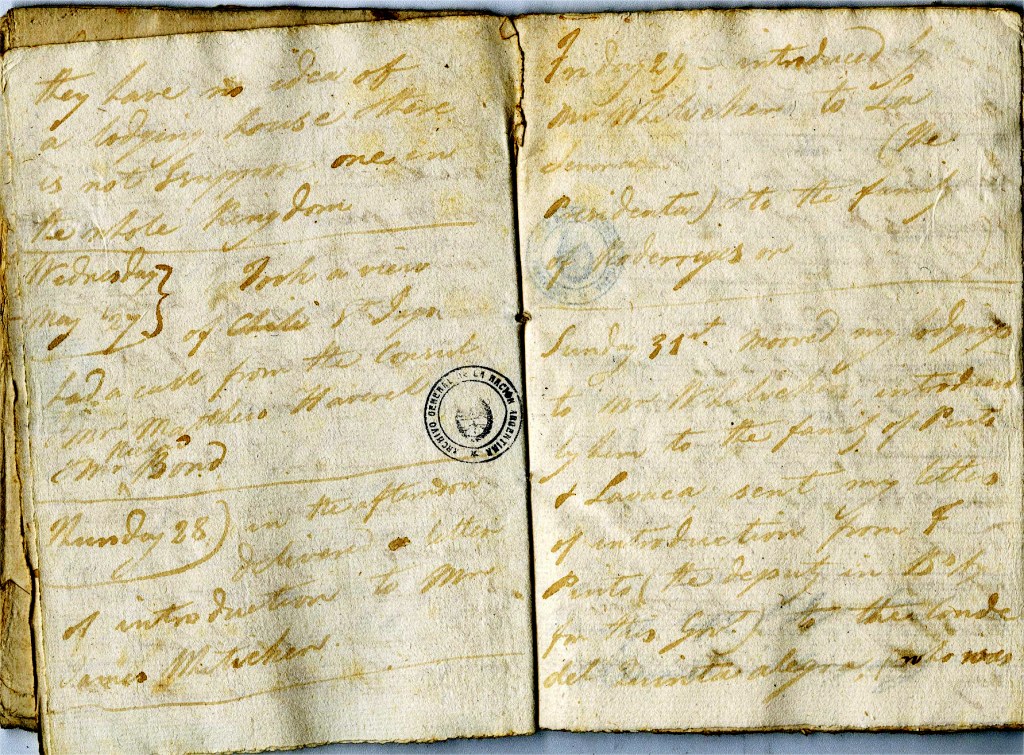 they have no idea of
a lodging house there
is not I suppose one in
the whole Kingdom
Wednesday
May 27
Took a view
of Chile St Jago
had a call from the Consul
Mr Havel
& Mr Bond
Thursday 28
in the afternoon
delivered a letter
of introduction to Mr
James
ARCHIVO GENERAL DE LA NACIÓN ARGENTINA
Friday 29 - introduced by
Mr to La
(the
Presidenta) & to the family
of or
Sunday 31st. moved my lodgings
to Mr
by him to the family of Pinto
& sent my letters
of introduction from F
Pinto (the deputy in Bs As
for this Govt.) to the Conde
del Quinta alegra, who was